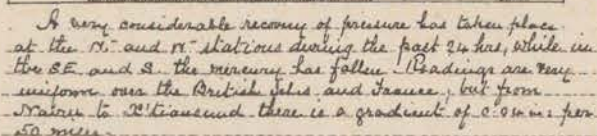 A very considerable recovery of pressure has taken place
at the N. and W. stations during the past 24 hrs, while in
the SE and S. the mercury has fallen. Readings are very
uniform over the British Isles and France, but from
Nairn to X'tiansund there is a gradient of 0.04 in: per
50 miles.